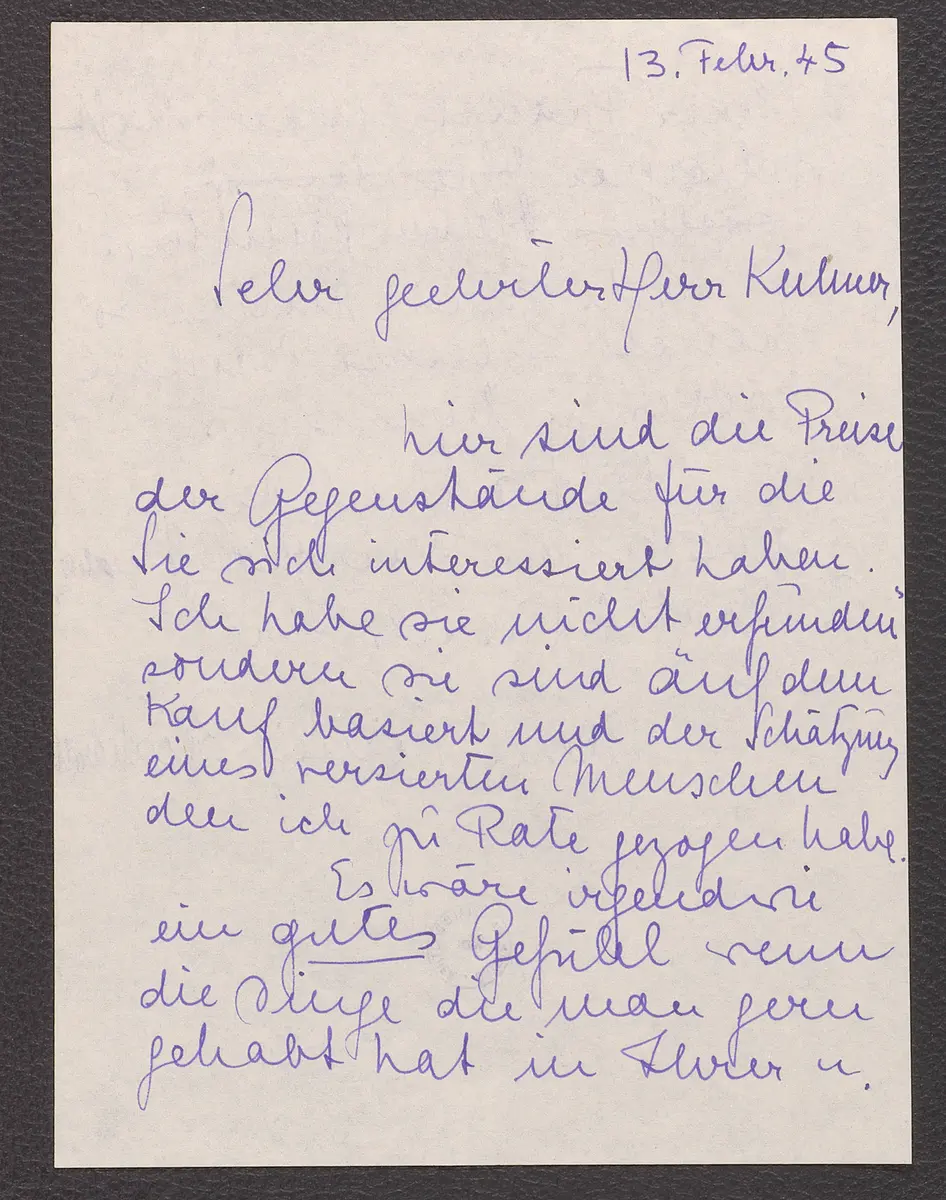 13. Febr. 45
Sehr geehrter Herr Kuhner,
hier sind die Preise
der Gegenstände für die
Sie sich interessiert haben.
Ich habe sie nicht erfunden
sondern sie sind auf dem
Kauf basiert und der Schätzung
eines versierten Menschen
den ich zu Rate gezogen habe.
Es wäre irgendwie
ein gutes Gefühl wenn
die Dinge die man gern
gehabt hat in Ihrer u.